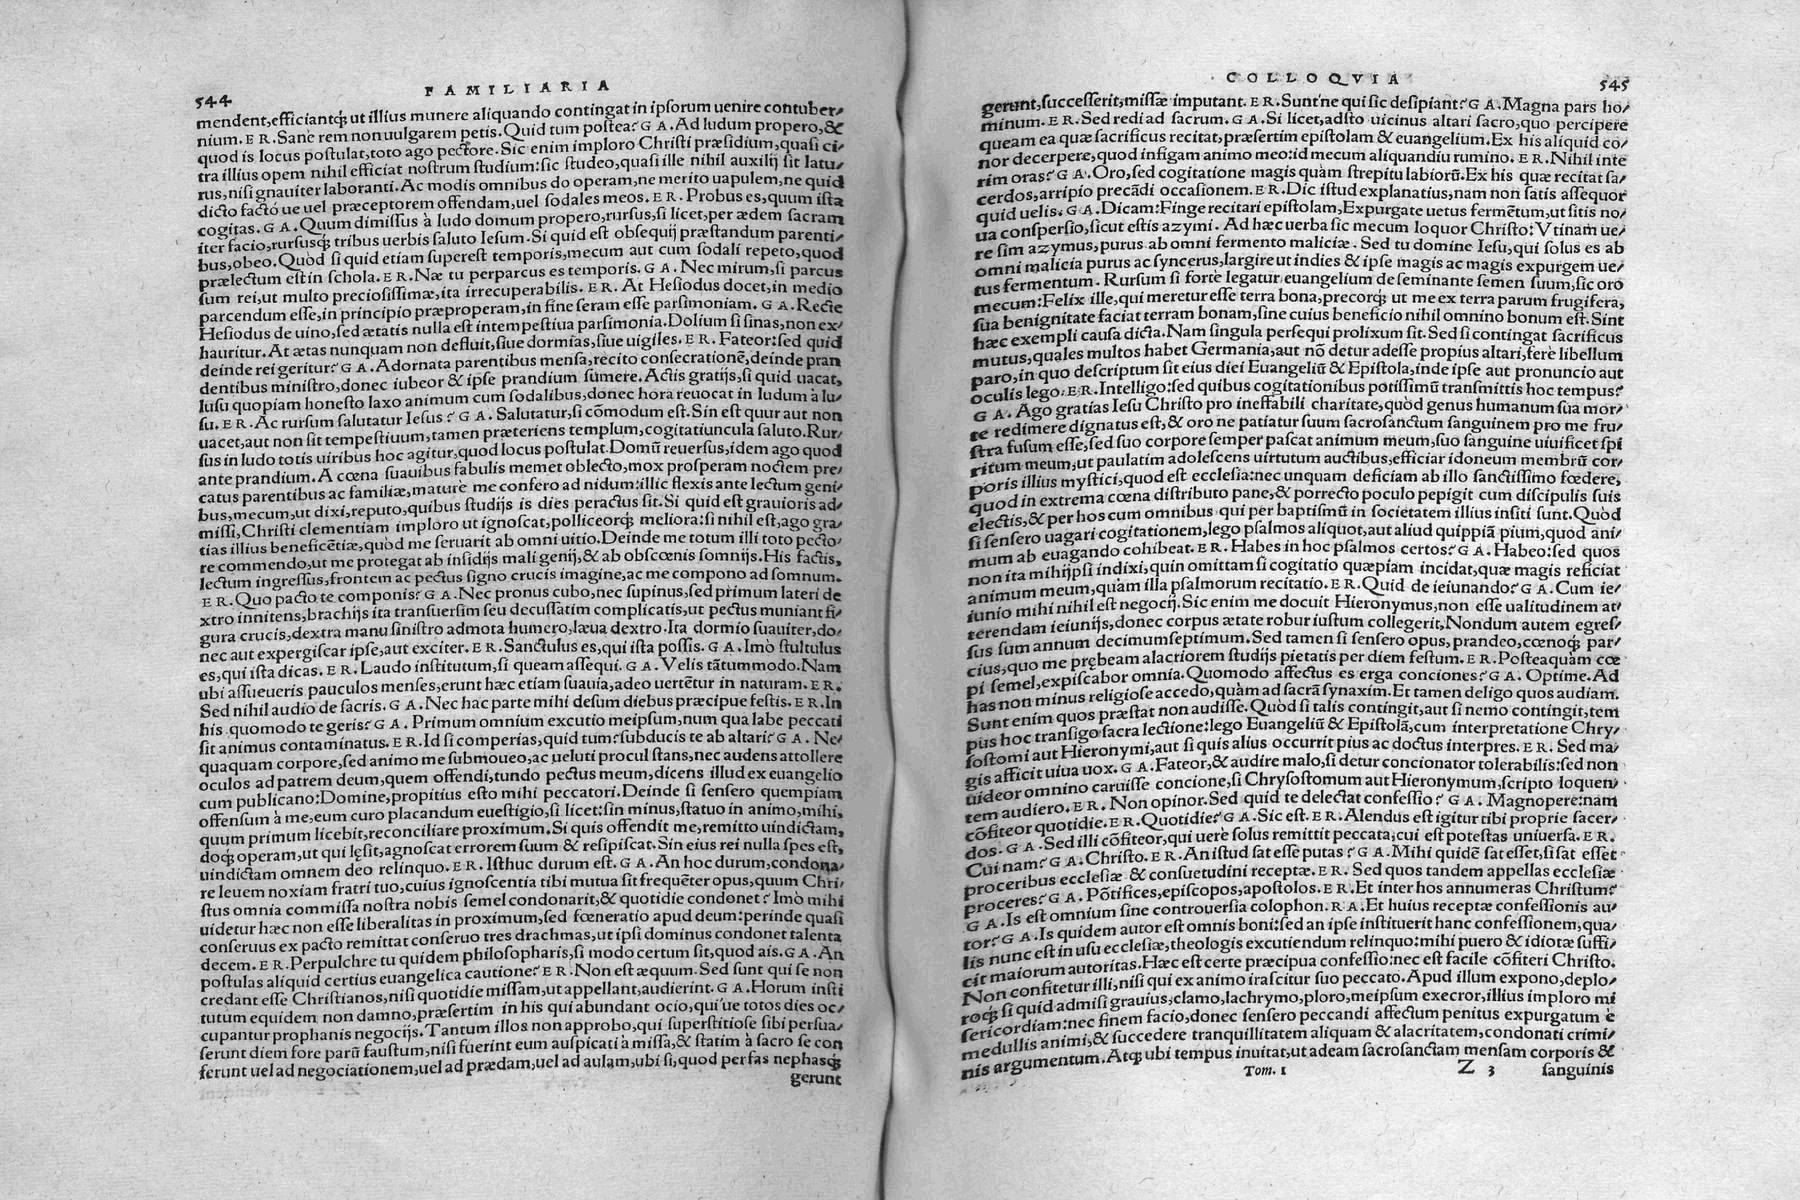 544
FAMILIARIA
mendent,efficiantq́; ut illius munere aliquando contingat in ipsorum uenire contuber/
nium. E R. Sanè rem non uulgarem petis. Quid tum postea? G A. Ad ludum propero,&
quod is locus postulat,toto ago pectore. Sic enim imploro Christi præsidium,quasi ci/
tra illius opem nihil efficiat nostrum studium: sic studeo,quasi ille nihil auxilij sit latu/
rus,nisi gnauiter laboranti. Ac modis omnibus do operam,ne merito uapulem,ne quid
dicto factó ue uel præceptorem offendam,uel sodales meos. E R. Probus es,quum ista
cogitas. G A. Quum dimissus à ludo domum propero,rursus,si licet,per ædem sacram
iter facio,rursusq́; tribus uerbis saluto Iesum. Si quid est obsequij præstandum parenti/
bus,obeo. Quòd si quid etiam superest temporis,mecum aut cum sodali repeto,quod
prælectum est in schola. E R. Næ tu perparcus es temporis. G A. Nec mirum,si parcus
sum rei,ut multo preciosissimæ,ita irrecuperabilis. E R. At Hesiodus docet,in medio
parcendum esse,in principio præproperam,in fine seram esse parsimoniam. G A. Recte
Hesiodus de uino,sed ætatis nulla est intempestiua parsimonia. Dolium si sinas,non ex/
hauritur. At ætas nunquam non defluit,siue dormias,siue uigiles. E R. Fateor: sed quid
deinde rei geritur? G A. Adornata parentibus mensa,recito consecrationẽ,deinde pran
dentibus ministro,donec iubeor & ipse prandium sumere. Actis gratijs,si quid uacat,
lusu quopiam honesto laxo animum cum sodalibus,donec hora reuocat in ludum à lu/
su. E R. Ac rursum salutatur Iesus? G A. Salutatur,si cõmodum est. Sin est quur aut non
uacet,aut non sit tempestiuum,tamen præteriens templum,cogitatiuncula saluto. Rur/
sus in ludo totis uiribus hoc agitur,quod locus postulat. Domũ reuersus,idem ago quod
ante prandium. A cœna suauibus fabulis memet oblecto,mox prosperam noctem pre/
catus parentibus ac familiæ,maturè me confero ad nidum: illic flexis ante lectum geni/
bus,mecum,ut dixi,reputo,quibus studijs is dies peractus sit. Si quid est grauioris ad/
missi,Christi clementiam imploro ut ignoscat,polliceorq́; meliora: si nihil est,ago gra/
tias illius beneficẽtiæ,quòd me seruarit ab omni uitio. Deinde me totum illi toto pecto/
re commendo,ut me protegat ab insidijs mali genij,& ab obscœnis somnijs. His factis,
lectum ingressus,frontem ac pectus signo crucis imagine,ac me compono ad somnum.
E R. Quo pacto te componis? G A. Nec pronus cubo,nec supinus,sed primum lateri de
xtro innitens,brachijs ita transuersim seu decussatim complicatis,ut pectus muniant fi/
gura crucis,dextra manu sinistro admota humero,læua dextro. Ita dormio suauiter,do/
nec aut expergiscar ipse,aut exciter. E R. Sanctulus es,qui ista possis. G A. Imò stultulus
es,qui ista dicas. E R. Laudo institutum,si queam assequi. G A. Velis tãtummodo. Nam
ubi assueueris pauculos menses,erunt hæc etiam suauia,adeo uertẽtur in naturam. E R.
Sed nihil audio de sacris. G A. Nec hac parte mihi desum diebus præcipue festis. E R. In
his quomodo te geris? G A. Primum omnium excutio meipsum,num qua labe peccati
sit animus contaminatus. E R. Id si comperias,quid tum? subducis te ab altari? G A. Ne/
quaquam corpore,sed animo me submoueo,ac ueluti procul stans,nec audens attollere
oculos ad patrem deum,quem offendi,tundo pectus meum,dicens illud ex euangelio
cum publicano: Domine,propitius esto mihi peccatori. Deinde si sensero quempiam
offensum à me,eum curo placandum euestigio,si licet: sin minus,statuo in animo,mihi,
quum primum licebit,reconciliare proximum. Si quis offendit me,remitto uindictam,
doq́; operam,ut qui lęsit,agnoscat errorem suum & resipiscat. Sin eius rei nulla spes est,
uindictam omnem deo relinquo. E R. Isthuc durum est. G A. An hoc durum,condona/
re leuem noxiam fratri tuo,cuius ignoscentia tibi mutua sit frequẽter opus,quum Chri/
stus omnia commissa nostra nobis semel condonarit,& quotidie condonet? Imò mihi
uidetur hæc non esse liberalitas in proximum,sed fœneratio apud deum: perinde quasi
conseruus ex pacto remittat conseruo tres drachmas,ut ipsi dominus condonet talenta
decem. E R. Perpulchre tu quidem philosopharis,si modo certum sit,quod ais. G A. An
postulas aliquid certius euangelica cautione? E R. Non est æquum. Sed sunt qui se non
credant esse Christianos,nisi quotidie missam,ut appellant,audierint. G A. Horum insti
tutum equidem non damno,præsertim in his qui abundant ocio,qui'ue totos dies oc/
cupantur prophanis negocijs. Tantum illos non approbo,qui superstitiose sibi persua/
serunt diem fore parũ faustum,nisi fuerint eum auspicati à missa,& statim à sacro se con
ferunt uel ad negociationem,uel ad prædam,uel ad aulam,ubi si,quod per fas nephasq́;
gerunt
COLLOQVIA
545
gerunt,successerit,missæ imputant. E R. Sunt'ne qui sic desipiant? G A. Magna pars ho/
minum. E R. Sed redi ad sacrum. G A. Si licet,adsto uicinus altari sacro,quo percipere
queam ea quæ sacrificus recitat,præsertim epistolam & euangelium. Ex his aliquid co/
nor decerpere,quod infigam animo meo: id mecum aliquandiu rumino. E R. Nihil inte
rim oras? G A. Oro,sed cogitatione magis quàm strepitu labiorũ. Ex his quæ recitat sa/
cerdos,arripio precãdi occasionem. E R. Dic istud explanatius,nam non satis assequor
quid uelis. G A. Dicam: Finge recitari epistolam,Expurgate uetus fermẽtum,ut sitis no/
ua conspersio,sicut estis azymi. Ad hæc uerba sic mecum loquor Christo: Vtinam ue/
re sim azymus,purus ab omni fermento maliciæ. Sed tu domine Iesu,qui solus es ab
omni malicia purus ac syncerus,largire ut indies & ipse magis ac magis expurgem ue/
tus fermentum. Rursum si forte legatur euangelium de seminante semen suum,sic oro
mecum: Felix ille,qui meretur esse terra bona,precorq́; ut me ex terra parum frugifera,
sua benignitate faciat terram bonam,sine cuius beneficio nihil omnino bonum est. Sint
hæc exempli causa dicta. Nam singula persequi prolixum sit. Sed si contingat sacrificus
mutus,quales multos habet Germania,aut nõ detur adesse propius altari,ferè libellum
paro,in quo descriptum sit eius diei Euangeliũ & Epistola,inde ipse aut pronuncio aut
oculis lego. E R. Intelligo: sed quibus cogitationibus potissimũ transmittis hoc tempus?
G A. Ago gratias Iesu Christo pro ineffabili charitate,quòd genus humanum sua mor/
te redimere dignatus est,& oro ne patiatur suum sacrosanctum sanguinem pro me fru/
stra fusum esse,sed suo corpore semper pascat animum meum,suo sanguine uiuificet spi
ritum meum,ut paulatim adolescens uirtutum auctibus,efficiar idoneum membrũ cor/
poris illius mystici,quod est ecclesia: nec unquam deficiam ab illo sanctissimo fœdere,
quod in extrema cœna distributo pane,& porrecto poculo pepigit cum discipulis suis
electis,& per hos cum omnibus qui per baptismũ in societatem illius insiti sunt. Quòd
si sensero uagari cogitationem,lego psalmos aliquot,aut aliud quippiã pium,quod ani/
mum ab euagando cohibeat. E R. Habes in hoc psalmos certos? G A. Habeo: sed quos
non ita mihijpsi indixi,quin omittam si cogitatio quæpiam incidat,quæ magis reficiat
animum meum,quàm illa psalmorum recitatio. E R. Quid de ieiunando? G A. Cum ie/
iunio mihi nihil est negocij. Sic enim me docuit Hieronymus,non esse ualitudinem at/
terendam ieiunijs,donec corpus ætate robur iustum collegerit,Nondum autem egres/
sus sum annum decimumseptimum. Sed tamen si sensero opus,prandeo,cœnoq́; par/
cius,quo me prębeam alacriorem studijs pietatis per diem festum. E R. Posteaquàm cœ
pi semel,expiscabor omnia. Quomodo affectus es erga conciones? G A. Optime. Ad
has non minus religiose accedo,quàm ad sacrã synaxim. Et tamen deligo quos audiam.
Sunt enim quos præstat non audisse. Quòd si talis contingit,aut si nemo contingit,tem
pus hoc transigo sacra lectione: lego Euangeliũ & Epistolã,cum interpretatione Chry/
sostomi aut Hieronymi,aut si quis alius occurrit pius ac doctus interpres. E R. Sed ma/
gis afficit uiua uox. G A. Fateor,& audire malo,si detur concionator tolerabilis: sed non
uideor omnino caruisse concione,si Chrysostomum aut Hieronymum,scripto loquen/
tem audiero. E R. Non opinor. Sed quid te delectat confessio? G A. Magnopere: nam
cõfiteor quotidie. E R. Quotidie? G A. Sic est. E R. Alendus est igitur tibi proprie sacer/
dos. G A. Sed illi cõfiteor,qui uerè solus remittit peccata,cui est potestas uniuersa. E R.
Cui nam? G A. Christo. E R. An istud sat esse putas? G A. Mihi quidẽ sat esset,si sat esset
proceribus ecclesiæ & consuetudini receptæ. E R. Sed quos tandem appellas ecclesiæ
proceres? G A. Põtifices,episcopos,apostolos. E R. Et inter hos annumeras Christum?
G A. Is est omnium sine controuersia colophon. R A. Et huius receptæ confessionis au/
tor? G A. Is quidem autor est omnis boni: sed an ipse instituerit hanc confessionem,qua/
lis nunc est in usu ecclesiæ,theologis excutiendum relinquo: mihi puero & idiotæ suffi/
cit maiorum autoritas. Hæc est certe præcipua confessio: nec est facile cõfiteri Christo.
Non confitetur illi,nisi qui ex animo irascitur suo peccato. Apud illum expono,deplo/
roq́; si quid admisi grauius,clamo,lachrymo,ploro,meipsum execror,illius imploro mi
sericordiam: nec finem facio,donec sensero peccandi affectum penitus expurgatum è
medullis animi,& succedere tranquillitatem aliquam & alacritatem,condonati crimi/
nis argumentum. Atq́; ubi tempus inuitat,ut adeam sacrosanctam mensam corporis &
Tom. 1
Z 3
sanguinis